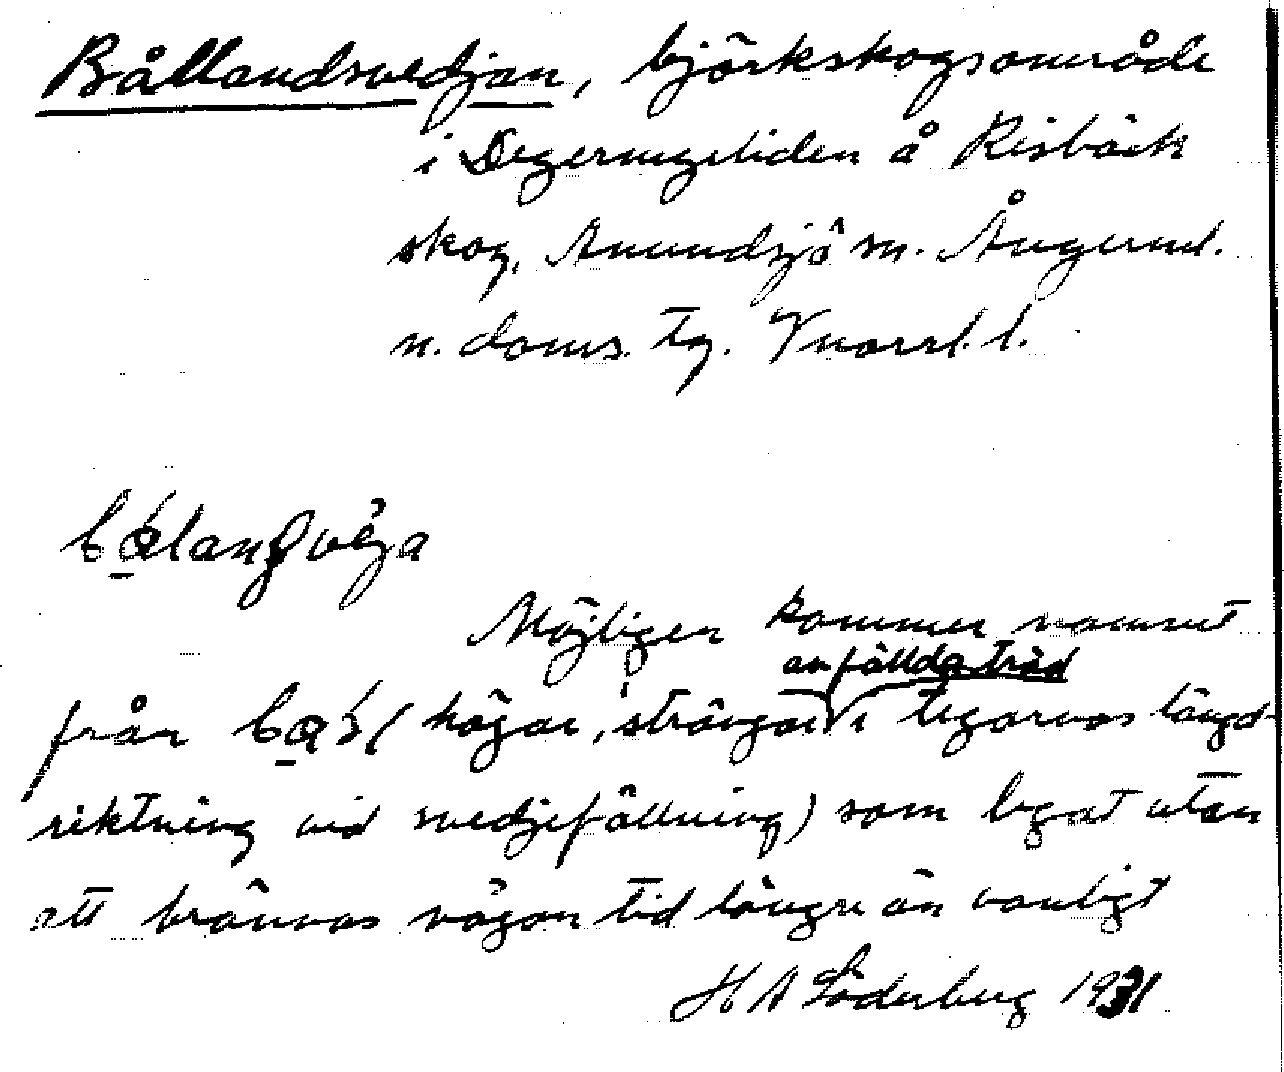 Bållandsvedjan, björkskogsområde
i Degermyrliden å Risbäck
skog, Anundsjö sn. Ångerml.
n. doms. tg. Vnorrl. l.
Möjligen kommer namnet
av fällda träd
från högar, strängar i tegarnas längd-
riktning vid svedjefällning) som legat utan
att brännas någon tid längre än vanligt
H A Söderberg 1931